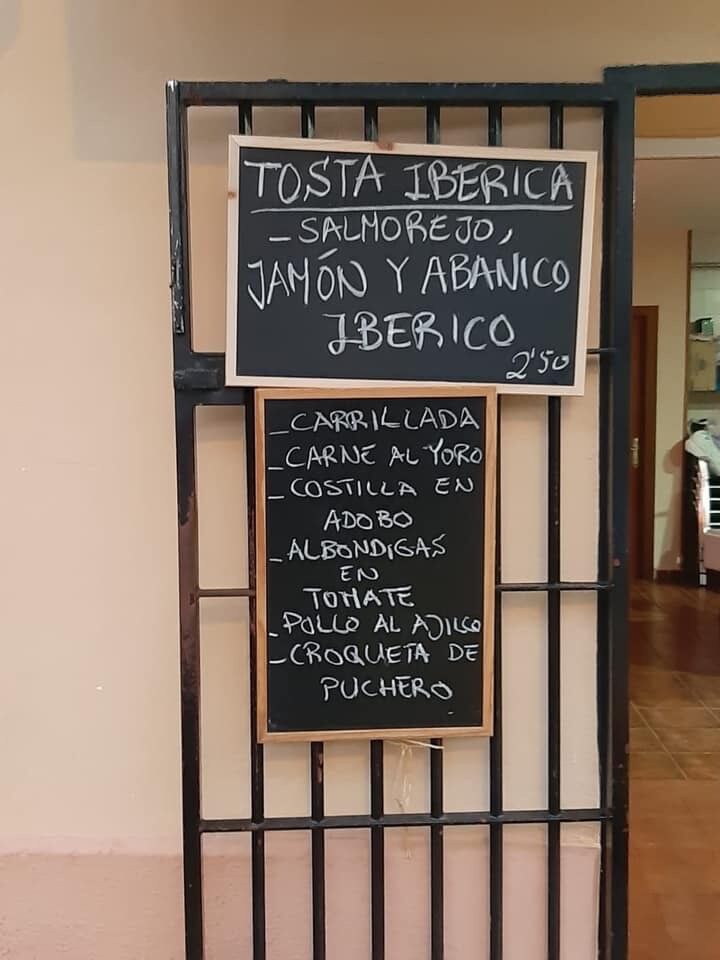 TOSTA IBERICA
- SALMOREJO,
JAMÓN Y ABANICO
IBERICO
2'50
- CARRILLADA
- CARNE AL YORO
- COSTILLA EN
ADOBO
- ALBONDIGAS
EN
TOMATE
- POLLO AL AJILLO
- CROQUETA DE
PUCHERO